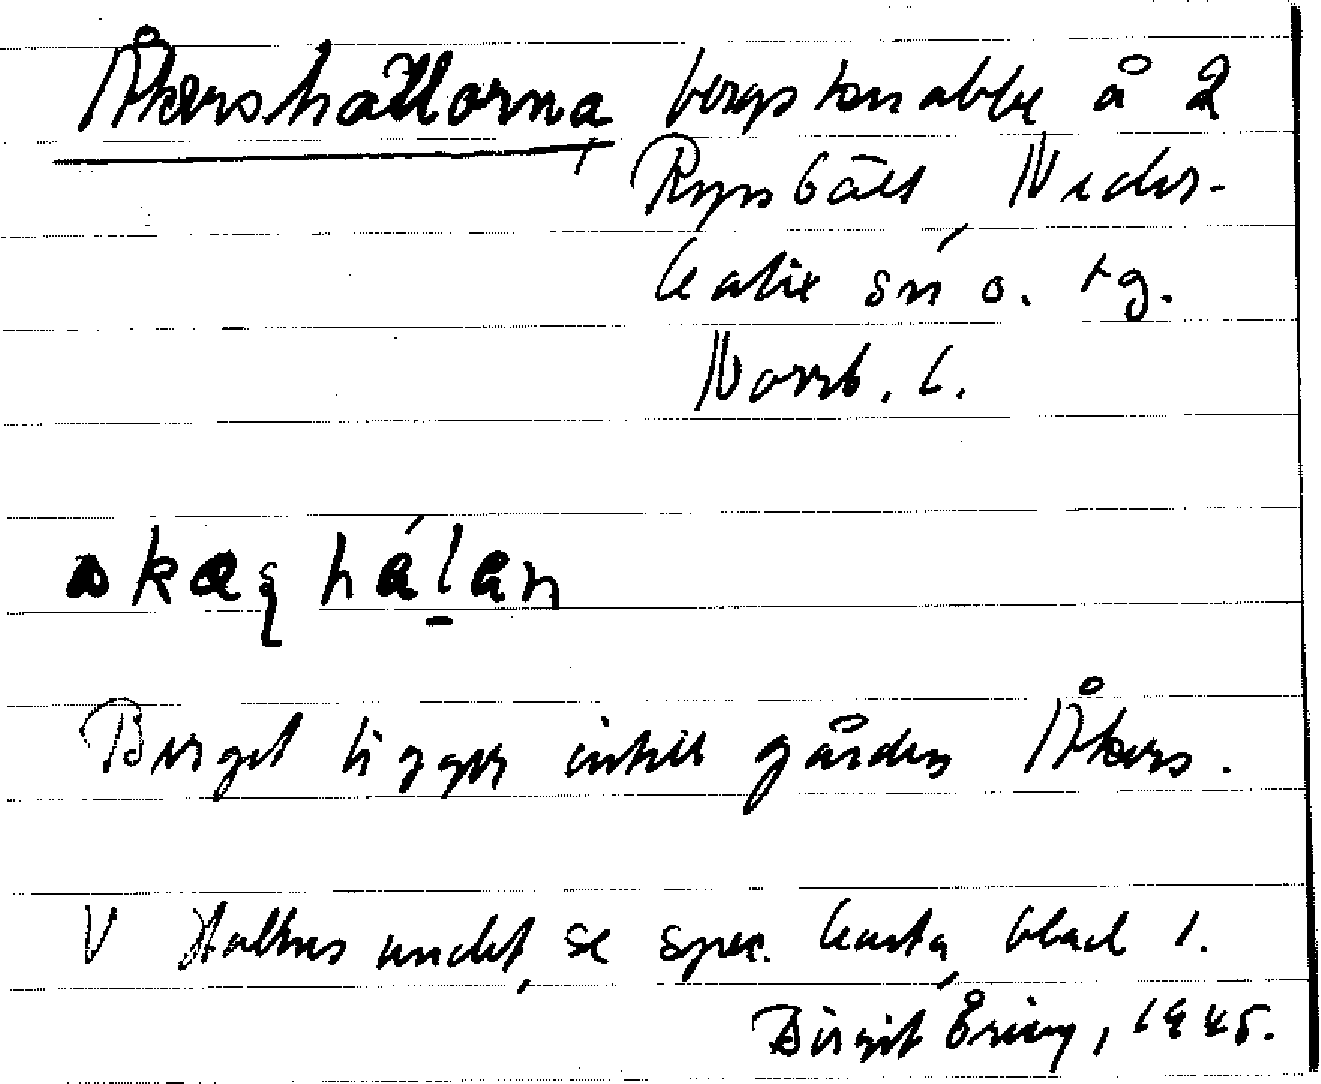 Åkershällorna, bergsknabbe å 2
Rynbäck, Neder-
kalix sn o. tg.
Norrb. l.
Berget ligger intill gården Åkers.
V undet, se spec. karta, blad 1.
Birgit Öring, 1945.